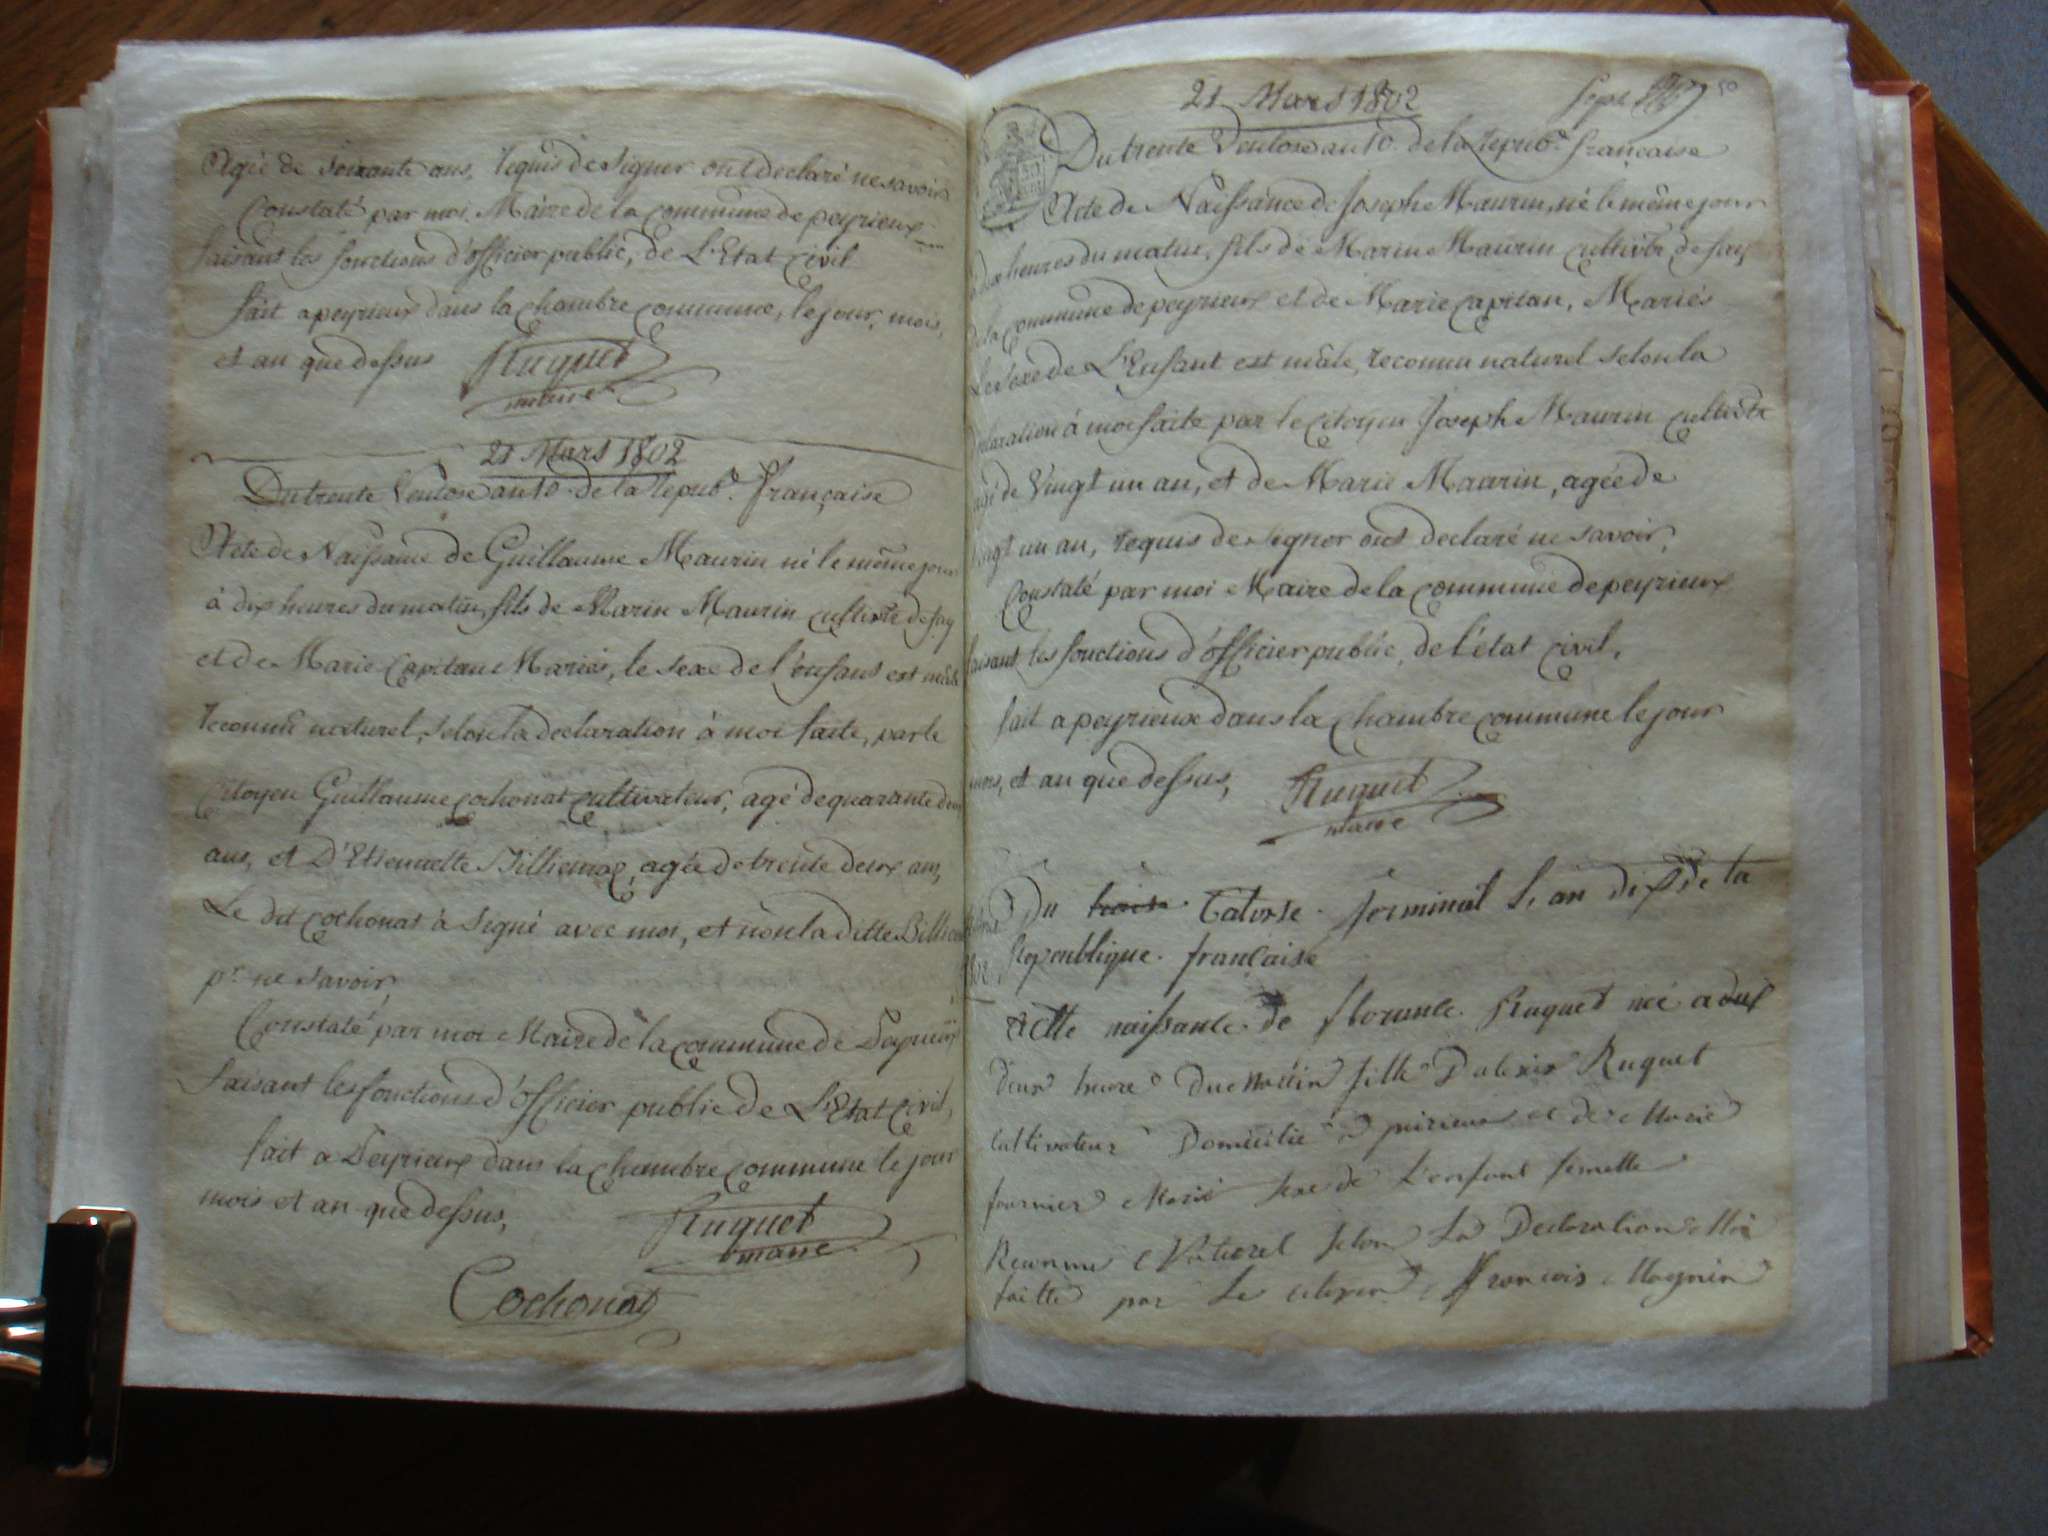 Agée de soixante ans, requis de signer ont declaré ne savoir
Constaté par moi Maire de la commune de peyrieux
faisant les fonctions d'officier public, de L'Etat Civil
fait a peyrieux dans la chambre commune, le jour, mois,
et an que dessus Ruquet
maire
21 Mars 1802
Du trente Ventose an 10 de la repub.e française
Acte de Naissance de Guillaume Maurin né le même jour
à dix heures du matin, fils de Marin Maurin de fay
et de Marie Capitan Mariés, le sexe de l'enfant est mâle
reconnu naturel, selon la declaration à moi faite, par le
Citoyen Guillaume Cochonat Cultivateur, agé de quarante deux
ans, et D'Etiennette agée de trente deux ans,
Le dit Cochonat à signé avec moi, et non la ditte
pr. ne savoir,
Constaté par moi Maire de la commune de Peyrieux
faisant les fonctions d'officier public de L'Etat Civil,
fait a Peyrieux dans la chambre commune le jour
mois et an que dessus,
Ruquet
maire
Cochonat
21 Mars 1802
Du trente Ventose an 10 de la repub.e française
Acte de Naissance de Joseph Maurin, né le même jour
heures du matin, fils de Marin Maurin de fay
de la commune de peyrieux et de Marie Capitan, Mariés
Le sexe de L'Enfant est mâle, reconnu naturel selon la
declaration à moi faite par le Citoyen Joseph Maurin
agé de Vingt un an, et de Marie Maurin, agée de
vingt un an, requis de signer ont declaré ne savoir,
Constaté par moi Maire de la commune de peyrieux
faisant les fonctions d'officier public, de l'état Civil,
fait a peyrieux dans la Chambre commune le jour
mois, et an que dessus, Ruquet
maire
Du Catorse germinal L'an dix de la
Republique francaise
Actte naissance de Ruquet né a
Deux heure Du Matin fille D'alexis Ruquet
Cultivateur Domicilie a peirieux et de Marie
fournier Marié sexe de L'enfant femelle
Reconnue Naturel selon La Declaration a Moi
faitte par Le citoyen francois Magnin